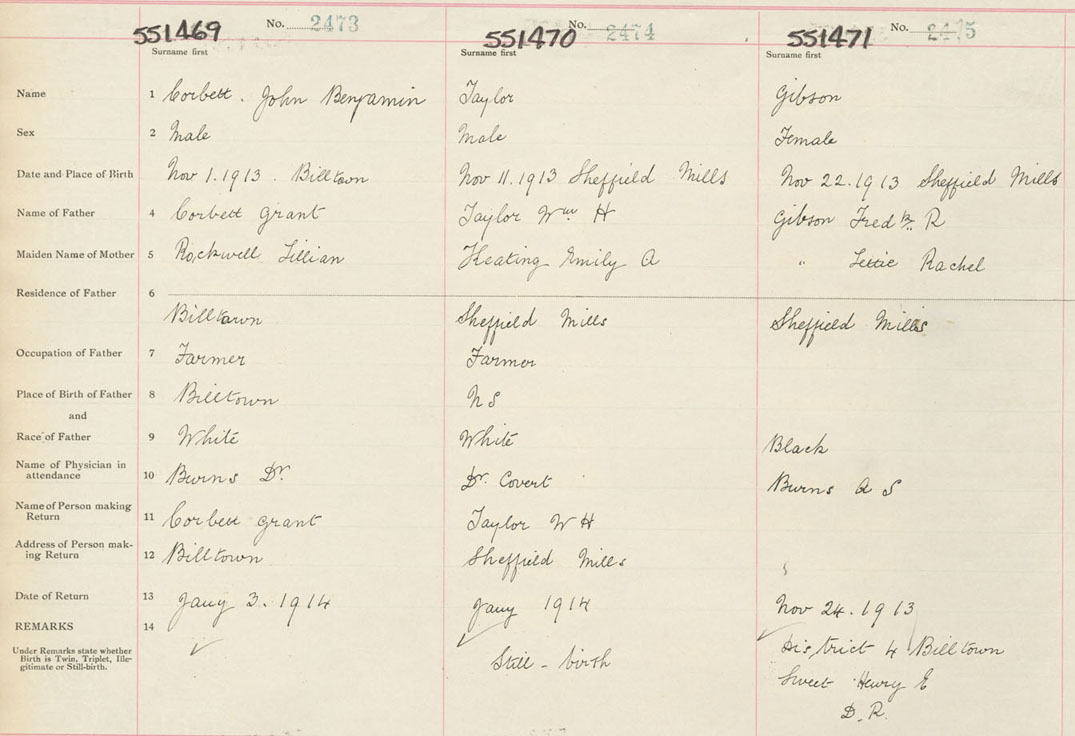 551469 No. 2473 551470 No. 2474 551471 No. 2475
Surname first Surname first Surname first
Name 1 Corbett. John Benjamin Taylor Gibson
Sex 2 Male Male Female
Date and Place of Birth Nov 1. 1913. Billtown Nov 11. 1913 Sheffield Mills Nov 22. 1913 Sheffield Mills
Name of Father 4 Corbett Grant Taylor Wm H Gibson Fredk. R
Maiden Name of Mother 5 Rockwell Lillian Keating Emily A " Lettie Rachel
Residence of Father 6
Billtown Sheffield Mills Sheffield Mills
Occupation of Father 7 Farmer Farmer
Place of Birth of Father 8 Billtown N S
and
Race of Father 9 White White Black
Name of Physician in
attendance 10 Burns Dr. Dr. Covert Burns A S
Name of Person making
Return 11 Corbett Grant Taylor W H
Address of Person mak-
ing Return 12 Billtown Sheffield Mills
Date of Return 13 Jany 3. 1914 Jany 1914 Nov 24. 1913
REMARKS 14
Under Remarks state whether
Birth is Twin, Triplet, Ille-
gitimate or Still-birth.
Still - birth
District 4 Billtown
Sweet Henry E
D. R.